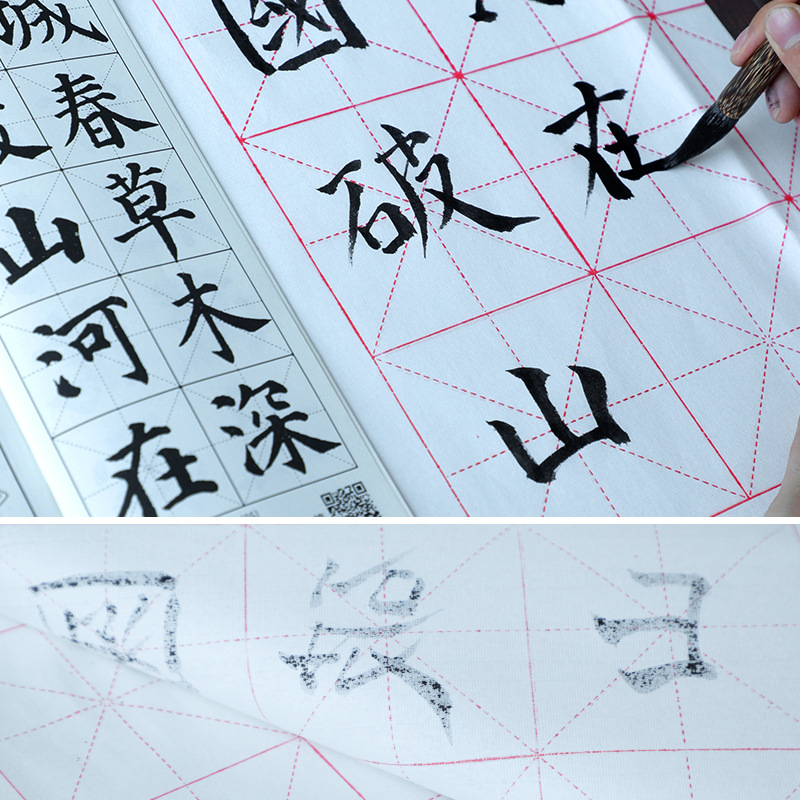 在
國破山
城春草木深
破山河在